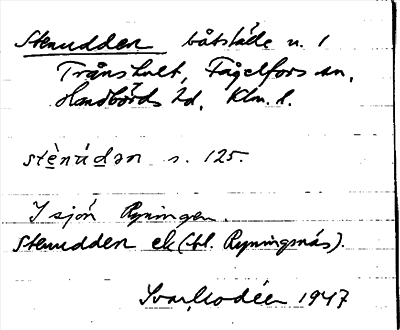 Stenudden båtställe u. 1
Trånshult, Fågelfors sn,
Handbörds hd, Klm. l.
stènúdən s. 125.
I sjön Ryningen.
Stenudden ek (bl. Ryningsnäs).
Ivar Modéer 1947